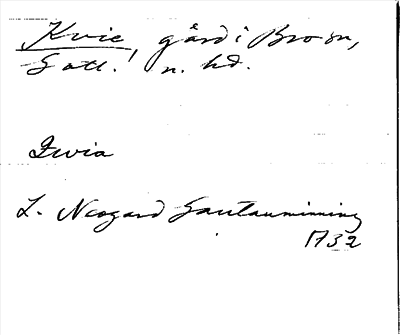 Kvie, gård i Bro sn,
Gotl. n. hd.
Qvia
L. Neogard Gautauminning
1732